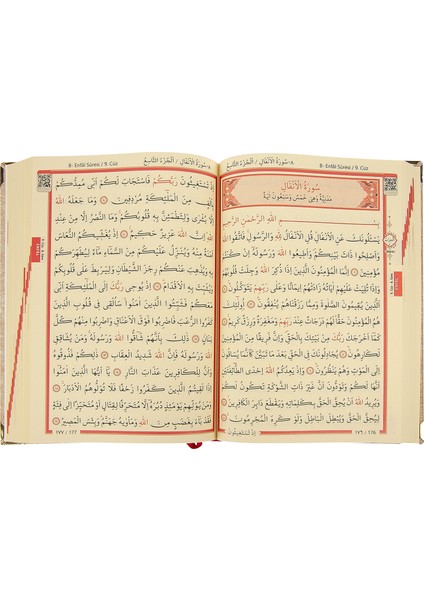 ٨-سُورَةُ الْاَنْفَالِ / اَلْجُزْءُ التَّاسِعُ
8- Enfâl Sûresi / 9. Cüz
سُورَةُ الْاَنْفَالِ
مَدَنِيَّةٌ وَهِيَ خَمْسٌ وَسَبْعُونَ اٰيَةً
بِسْمِ اللّٰهِ الرَّحْمٰنِ الرَّحِيمِ
يَسْـَٔلُونَكَ عَنِ الْاَنْفَالِ قُلِ الْاَنْفَالُ لِلّٰهِ وَالرَّسُولِ فَاتَّقُوا اللّٰهَ
وَاَصْلِحُوا ذَاتَ بَيْنِكُمْ وَاَطِيعُوا اللّٰهَ وَرَسُولَهُ اِنْ كُنْتُمْ
مُؤْمِنِينَ ۝ اِنَّمَا الْمُؤْمِنُونَ الَّذِينَ اِذَا ذُكِرَ اللّٰهُ وَجِلَتْ قُلُوبُهُمْ
وَاِذَا تُلِيَتْ عَلَيْهِمْ اٰيَاتُهُ زَادَتْهُمْ اِيمَانًا وَعَلٰى رَبِّهِمْ يَتَوَكَّلُونَ ۝
اَلَّذِينَ يُقِيمُونَ الصَّلٰوةَ وَمِمَّا رَزَقْنَاهُمْ يُنْفِقُونَ ۝ اُولٰٓئِكَ
هُمُ الْمُؤْمِنُونَ حَقًّا لَهُمْ دَرَجَاتٌ عِنْدَ رَبِّهِمْ وَمَغْفِرَةٌ وَرِزْقٌ كَرِيمٌ ۝
كَمَا اَخْرَجَكَ رَبُّكَ مِنْ بَيْتِكَ بِالْحَقِّ وَاِنَّ فَرِيقًا مِنَ الْمُؤْمِنِينَ
لَكَارِهُونَ ۝ يُجَادِلُونَكَ فِي الْحَقِّ بَعْدَ مَا تَبَيَّنَ كَاَنَّمَا يُسَاقُونَ
اِلَى الْمَوْتِ وَهُمْ يَنْظُرُونَ ۝ وَاِذْ يَعِدُكُمُ اللّٰهُ اِحْدَى الطَّائِفَتَيْنِ
اَنَّهَا لَكُمْ وَتَوَدُّونَ اَنَّ غَيْرَ ذَاتِ الشَّوْكَةِ تَكُونُ لَكُمْ
وَيُرِيدُ اللّٰهُ اَنْ يُحِقَّ الْحَقَّ بِكَلِمَاتِهِ وَيَقْطَعَ دَابِرَ الْكَافِرِينَ ۝
لِيُحِقَّ الْحَقَّ وَيُبْطِلَ الْبَاطِلَ وَلَوْ كَرِهَ الْمُجْرِمُونَ ۝
اِذْ تَسْتَغِيثُونَ
١٧٦ / 176
٨-سُورَةُ الْاَنْفَالِ / اَلْجُزْءُ التَّاسِعُ
8- Enfâl Sûresi / 9. Cüz
اِذْ تَسْتَغِيثُونَ رَبَّكُمْ فَاسْتَجَابَ لَكُمْ اَنِّي مُمِدُّكُمْ
بِاَلْفٍ مِنَ الْمَلٰٓئِكَةِ مُرْدِفِينَ ۝ وَمَا جَعَلَهُ اللّٰهُ
اِلَّا بُشْرٰى وَلِتَطْمَئِنَّ بِهِ قُلُوبُكُمْ وَمَا النَّصْرُ اِلَّا مِنْ عِنْدِ
اللّٰهِ اِنَّ اللّٰهَ عَزِيزٌ حَكِيمٌ ۝ اِذْ يُغَشِّيكُمُ النُّعَاسَ
اَمَنَةً مِنْهُ وَيُنَزِّلُ عَلَيْكُمْ مِنَ السَّمَاءِ مَاءً لِيُطَهِّرَكُمْ
بِهِ وَيُذْهِبَ عَنْكُمْ رِجْزَ الشَّيْطَانِ وَلِيَرْبِطَ عَلٰى قُلُوبِكُمْ
وَيُثَبِّتَ بِهِ الْاَقْدَامَ ۝ اِذْ يُوحِي رَبُّكَ اِلَى الْمَلٰٓئِكَةِ اَنِّي
مَعَكُمْ فَثَبِّتُوا الَّذِينَ اٰمَنُوا سَاُلْقِي فِي قُلُوبِ الَّذِينَ
كَفَرُوا الرُّعْبَ فَاضْرِبُوا فَوْقَ الْاَعْنَاقِ وَاضْرِبُوا مِنْهُمْ كُلَّ
بَنَانٍ ۝ ذٰلِكَ بِاَنَّهُمْ شَاقُّوا اللّٰهَ وَرَسُولَهُ وَمَنْ يُشَاقِقِ
اللّٰهَ وَرَسُولَهُ فَاِنَّ اللّٰهَ شَدِيدُ الْعِقَابِ ۝ ذٰلِكُمْ فَذُوقُوهُ
وَاَنَّ لِلْكَافِرِينَ عَذَابَ النَّارِ ۝ يَا اَيُّهَا الَّذِينَ اٰمَنُوا
اِذَا لَقِيتُمُ الَّذِينَ كَفَرُوا زَحْفًا فَلَا تُوَلُّوهُمُ الْاَدْبَارَ ۝
وَمَنْ يُوَلِّهِمْ يَوْمَئِذٍ دُبُرَهُ اِلَّا مُتَحَرِّفًا لِقِتَالٍ اَوْ مُتَحَيِّزًا اِلٰى فِئَةٍ
فَقَدْ بَاءَ بِغَضَبٍ مِنَ اللّٰهِ وَمَأْوٰيهُ جَهَنَّمُ وَبِئْسَ الْمَصِيرُ ۝
١٧٧ / 177